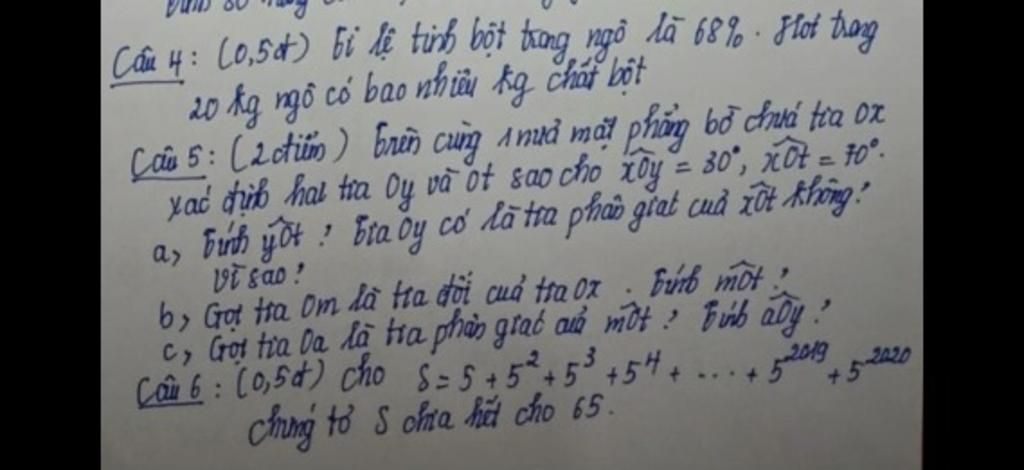 Câu 4 : (0,5đ) Tỉ lệ tinh bột trong ngô là 68%. Hỏi trong
20 kg ngô có bao nhiêu kg chất bột
Câu 5 : (2 điểm) Trên cùng 1 nửa mặt phẳng bờ chứa tia Ox
xác định hai tia Oy và Ot sao cho xOy = 30°, xOt = 70°.
a, Tính yOt ? Tia Oy có là tia phân giác của xOt không?
Vì sao?
b, Gọi tia Om là tia đối của tia Ox . Tính mOt ?
c, Gọi tia Oa là tia phân giác của mOt ? Tính aOy ?
Câu 6 : (0,5đ) Cho S = 5 + 5² + 5³ + 5⁴ + ... + 5²⁰¹⁹ + 5²⁰²⁰
Chứng tỏ S chia hết cho 65.